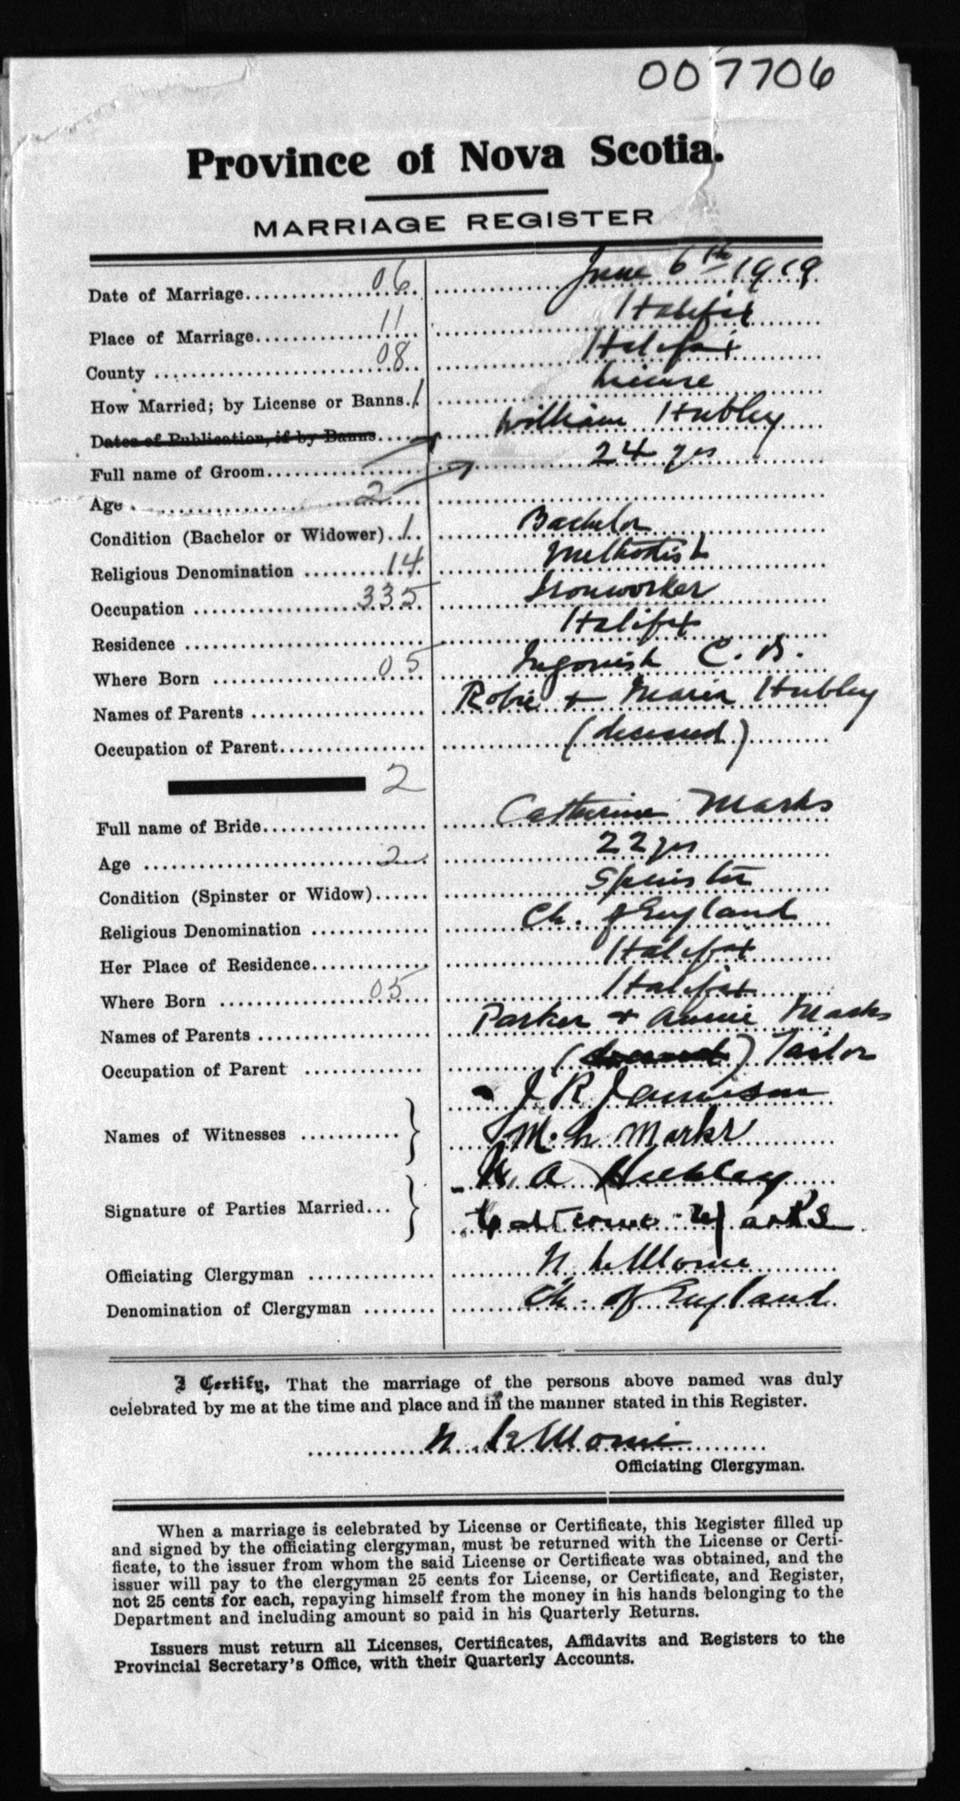 007706
Province of Nova Scotia.
MARRIAGE REGISTER
Date of Marriage 06 June 6th 1919
Place of Marriage 11 Halifax
County 08 Halifax
How Married; by License or Banns 1 License
Dates of Publication, if by Banns William Hubley
Full name of Groom 24 yrs
Age 2
Condition (Bachelor or Widower) 1 Bachelor
Religious Denomination 14 Methodist
Occupation 335 Ironworker
Residence Halifax
Where Born 05 Ingonish C. B.
Names of Parents Robie + Maria Hubley
Occupation of Parent (deceased)
2
Full name of Bride Catherine Marks
Age 2 22 yrs
Condition (Spinster or Widow) Spinster
Religious Denomination Ch. of England
Her Place of Residence Halifax
Where Born 05 Halifax
Names of Parents Parker + Annie Marks
Occupation of Parent (deceased) Tailor
J R Jamieson
Names of Witnesses M. L Marks
A Hubley
Signature of Parties Married Catherine Marks
Officiating Clergyman N
Denomination of Clergyman Ch. of England
I Certify, That the marriage of the persons above named was duly
celebrated by me at the time and place and in the manner stated in this Register.
N
Officiating Clergyman.
When a marriage is celebrated by License or Certificate, this Register filled up
and signed by the officiating clergyman, must be returned with the License or Certi-
ficate, to the issuer from whom the said License or Certificate was obtained, and the
issuer will pay to the clergyman 25 cents for License, or Certificate, and Register,
not 25 cents for each, repaying himself from the money in his hands belonging to the
Department and including amount so paid in his Quarterly Returns.
Issuers must return all Licenses, Certificates, Affidavits and Registers to the
Provincial Secretary's Office, with their Quarterly Accounts.